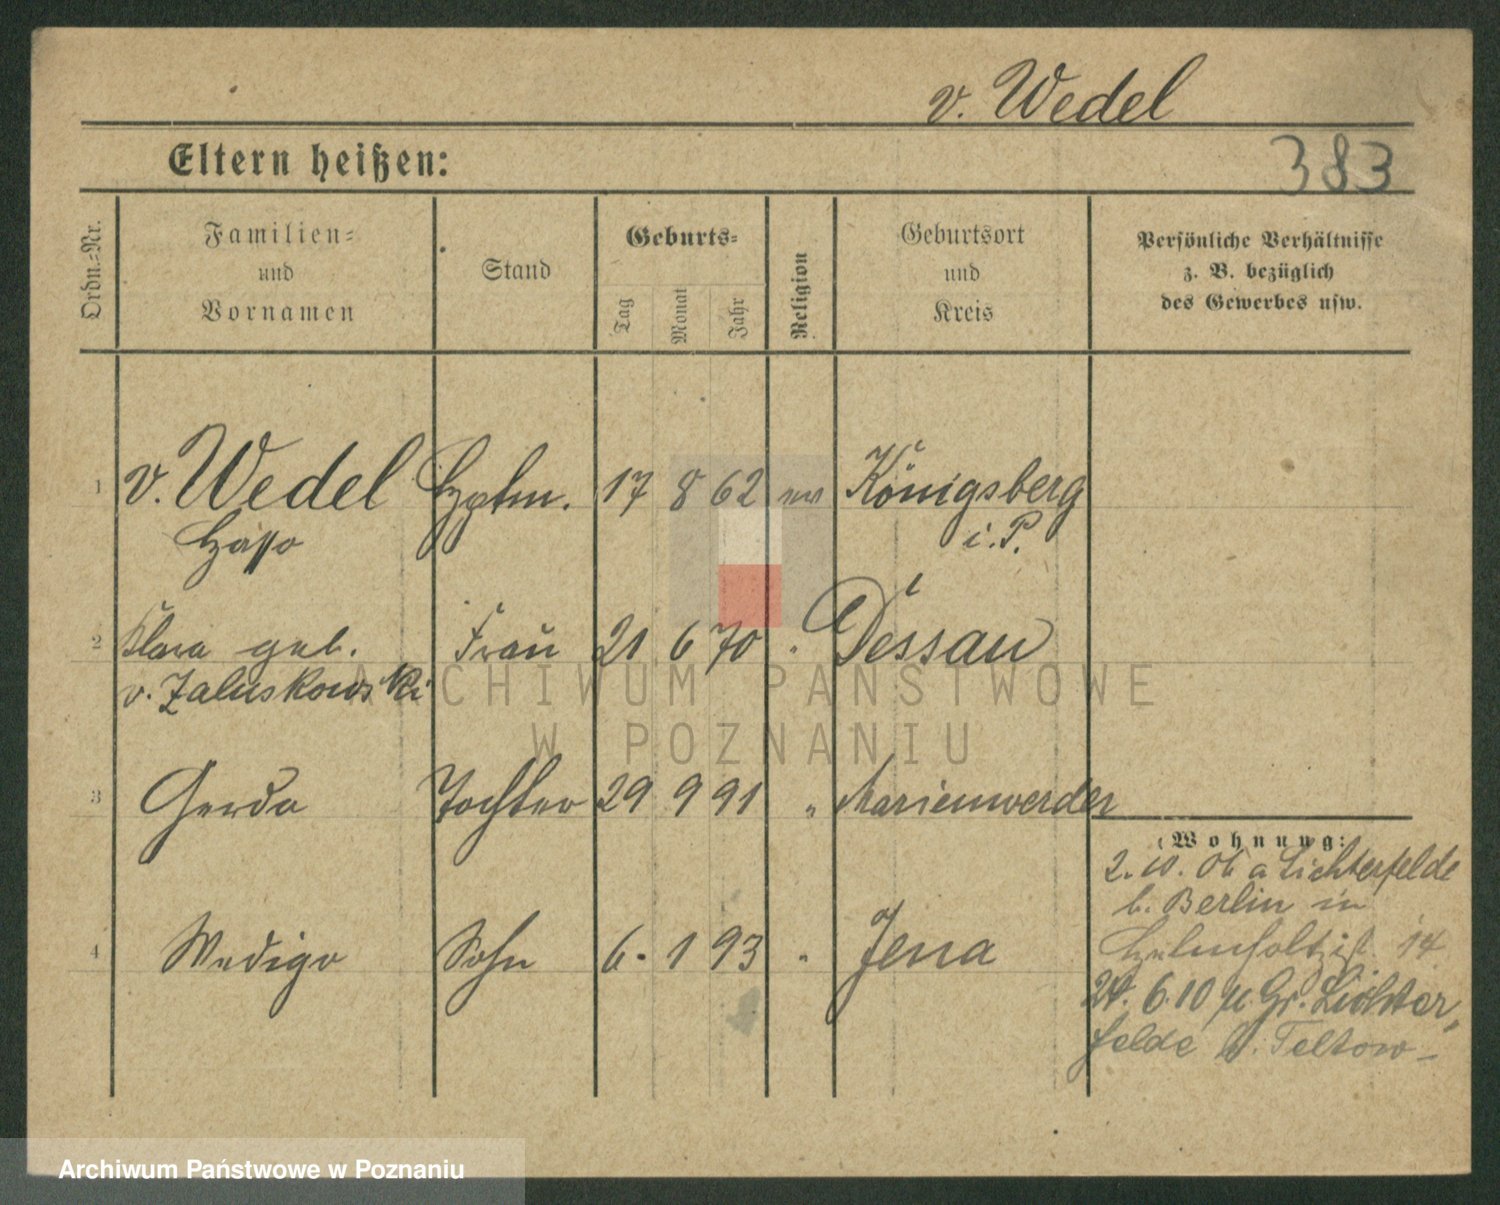 v. Wedel
Eltern heißen:
383
Ordn.-Nr.
Familien-
und
Vornamen
Stand
Geburts-
Tag
Monat
Jahr
Religion
Geburtsort
und
Kreis
Persönliche Verhältnisse
z. B. bezüglich
des Gewerbes usw.
1 v. Wedel Hptm. 17 8 62 ev Königsberg
Hasso i. P.
2 Klara geb. Frau 21 6 70 " Dessau
v. Zaluskowski
3 Gerda Tochter 29 9 91 " Marienwerder
Wohnung:
2. 10. 06 a Lichterfelde
b. Berlin in
4 Wedigo Sohn 6. 1 93 " Jena
Helmholtzst. 14
24. 6.10 n. Gr. Lichter
felde b. Teltow
ARCHIWUM PAŃSTWOWE
W POZNANIU
Archiwum Państwowe w Poznaniu